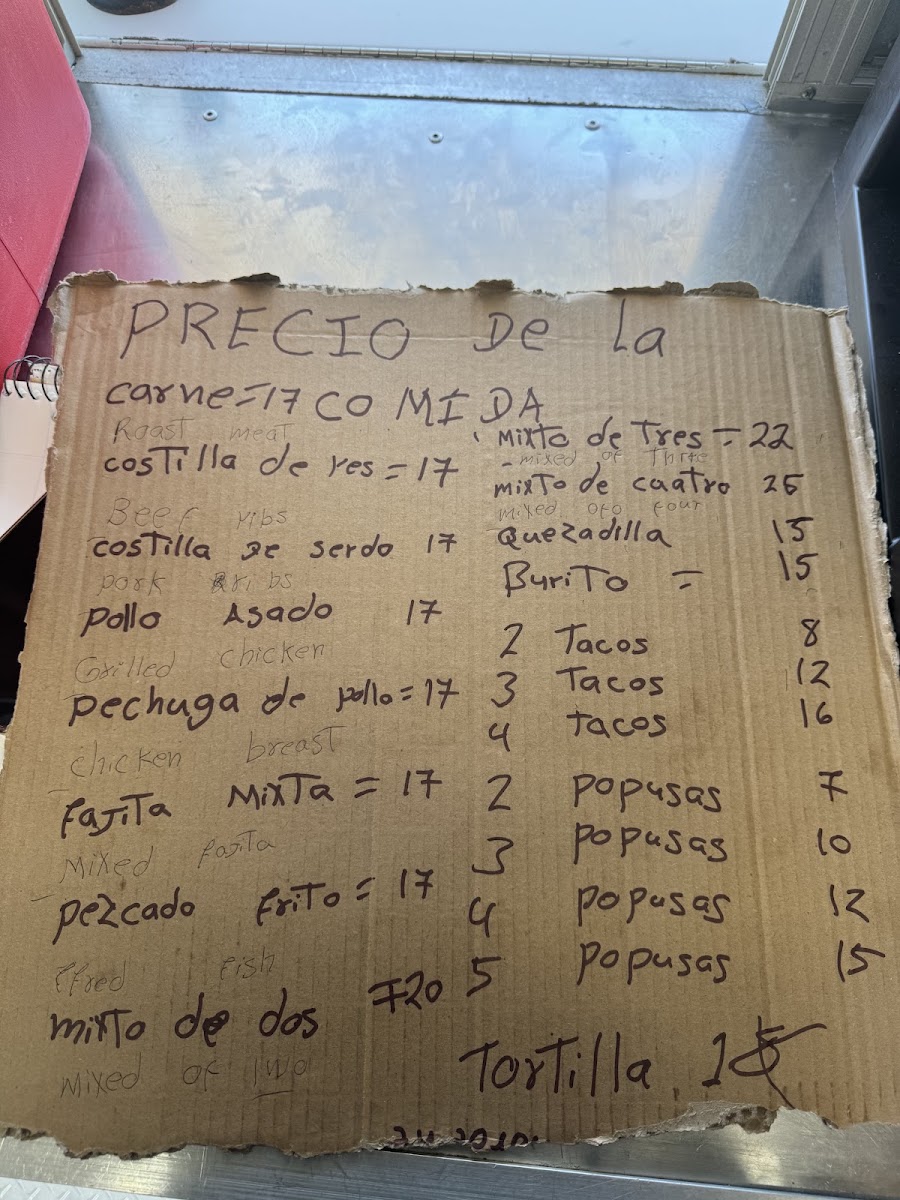 PRECIO De la
COMIDA
carne=17
Roast meat
costilla de res = 17
Beef ribs
costilla De serdo 17
pork ribs
pollo Asado 17
Grilled chicken
pechuga de pollo = 17
chicken breast
fajita Mixta = 17
Mixed fajita
pezcado frito = 17
ffred fish
mixto de dos 20
Mixed of Two
Mixto de Tres = 22
mixed of Three
mixto de cuatro 25
mixed of four
Quezadilla 15
Burito = 15
2 Tacos 8
3 Tacos 12
4 tacos 16
2 popusas 7
3 popusas 10
4 popusas 12
5 popusas 15
Tortilla 1